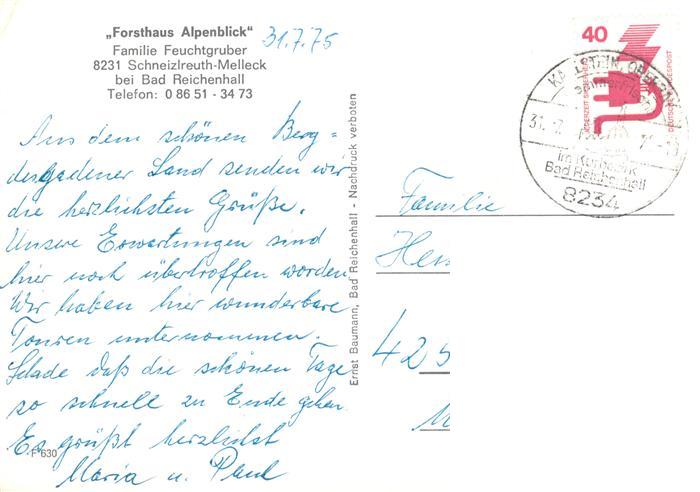 „Forsthaus Alpenblick"
Familie Feuchtgruber
8231 Schneizlreuth-Melleck
bei Bad Reichenhall
Telefon: 0 86 51 - 34 73
31.7.75
Aus dem schönen Berg=
desgadener Land senden wir
die herzlichsten Grüße.
Unsere Erwartungen sind
hier noch übertroffen worden
Wir haben hier wunderbare
Touren unternommen.
Schade daß die schönen Tage
so schnell zu Ende gehen.
Es grüßt herzlichst
Maria u. Paul
F 630
Ernst Baumann, Bad Reichenhall - Nachdruck verboten
40
JEDERZEIT SICHERHEIT
DEUTSCHE BUNDESPOST
im Kurbezirk
Bad Reichenhall
8234
Familie
425